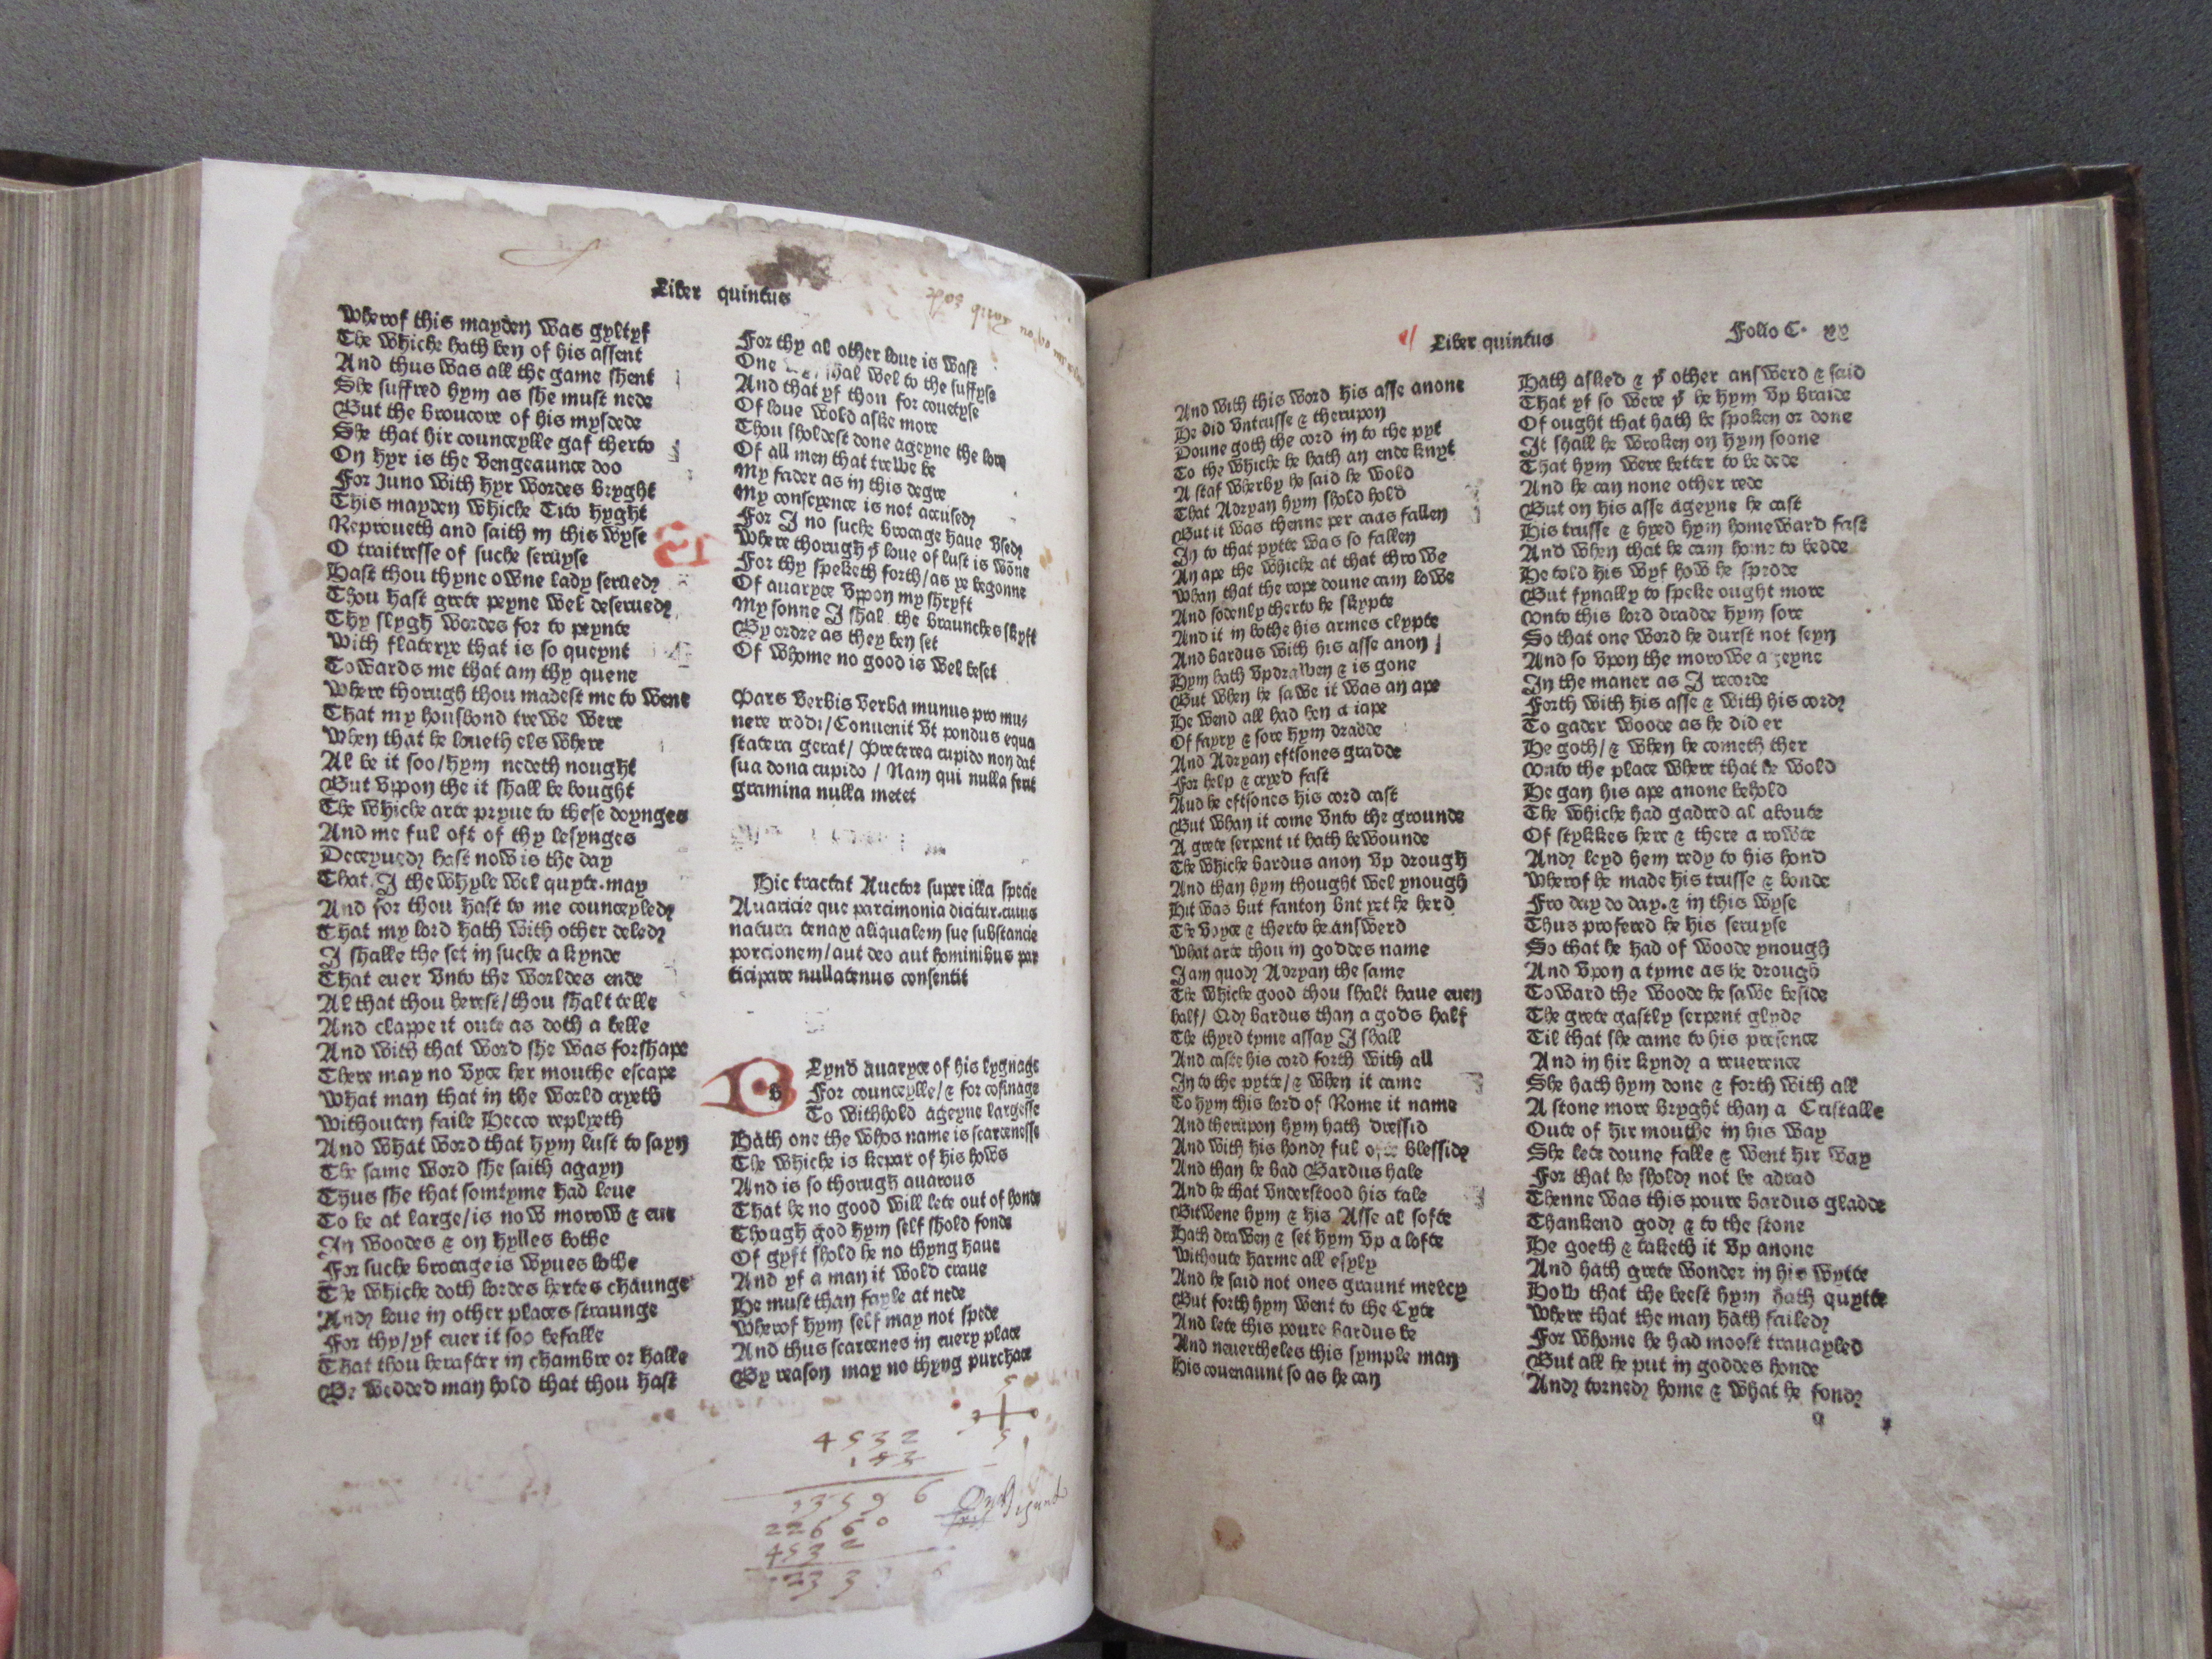 Liber quintus
Wherof this mayden was gyltyf
The whiche hath ben of his assent
And thus was all the game shent
She suffred hym as she must nede
But the broucore of his mysdede
She that hir counceylle gaf therto
On hyr is the vengeaunce doo
For Juno with hyr wordes bryght
This mayden whiche Tito hyght
Reproueth and saith in this wyse
O traitresse of suche seruyse
Hast thou thyne owne lady seruedỹ
Thou hast grete peyne wel deseruedỹ
Thy slygh wordes for to peynte
With flaterye that is so queynt
Towards me that am thy quene
Where thorugh thou madest me to wene
That my housbond trewe were
When that he loueth els where
Al be it soo/hym nedeth nought
But vpon the it shall be bought
The whiche arte pryue to these doynges
And me ful oft of thy lesynges
Deceyuedỹ hast now is the day
That I the whyle wel quyte may
And for thou hast to me counceyledỹ
That my lord hath with other deledỹ
I shalle the set in suche a kynde
That euer vnto the worldes ende
Al that thou herest/thou shalt telle
And clappe it oute as doth a belle
And with that word she was forshape
There may no vyce her mouthe escape
What man that in the world cryeth
Withouten faile Hecco replyeth
And what word that hym lust to sayn
The same word she saith agayn
Thus she that somtyme had leue
To be at large/is now morow & eue
In woodes & on hylles bothe
For suche brocage is wyues lothe
The whiche doth lordes hertes chaunge
Andỹ loue in other places straunge
For thy/yf euer it soo befalle
That thou herafter in chambre or halle
Be wedded man hold that thou hast
For thy al other loue is wast
One shal wel to the suffyse
And that yf thou for couetyse
Of loue wold aske more
Thou sholdest done ageyne the lore
Of all men that trewe be
My fader as in this degre
My conseyence is not accusedỹ
For I no suche brocage haue vsedỹ
Where thorugh yͤ loue of lust is wōne
For thy speketh forth/as ye begonne
Of auaryce vpon my shryft
My sonne I shal the braunches skyft
By ordre as they ben set
Of whome no good is wel beset
Pars verbis verba munus pro mu⸗
nere reddi/Conuenit vt pondus equa
statera gerat/ Preterea cupido non dat
sua dona cupido / Nam qui nulla serit
gramina nulla metet
Hic tractat Auctor super illa specie
Auaricie que parcimonia dicitur.cuius
natura tenax aliqualem sue substancie
porcionem/aut deo aut hominibus par
ticipare nullatenus consentit
b Lynd auaryce of his lygnage
For counceylle/& for cosinage
To withhold ageyne largesse
Hath one the whos name is scarcenesse
The whiche is kepar of his hows
And is so thorugh auarous
That he no good will lete out of honde
Though god hym self shold fonde
Of gyft shold he no thyng haue
And yf a man it wold craue
He must than fayle at nede
Wherof hym self may not spede
And thus scarcenes in euery place
By reason may no thyng purchace
4 5 3 2
1 5 3
1 3 5 9 6
2 2 6 6 0
4 5 3 2
Liber quintus
Folio C. xx
And with this word his asse anone
He did vntrusse & therupon
Doune goth the cord in to the pyt
To the whiche he hath an ende knyt
A staf wherby he said he wold
That Adryan hym shold hold
But it was thenne per caas fallen
In to that pytte was so fallen
An ape the whiche at that throwe
Whan that the rope doune cam lowe
And sodenly therto he skypte
And it in bothe his armes clypte
And bardus with his asse anon
Hym hath vpdrawen & is gone
But when he sawe it was an ape
He wend all had ben a iape
Of fayry & sore hym dradde
And Adryan eftsones gradde
For help & cryed fast
And he eftsones his cord cast
But whan it come vnto the grounde
A grete serpent it hath bewounde
The whiche bardus anon vp drough
And than hym thought wel ynough
Hit was but fanton bnt yet he herd
The voyce & therto he answerd
What arte thou in goddes name
I am quodỹ Adryan the same
The whiche good thou shalt haue euen
half/ Qdỹ bardus than a gods half
The thyrd tyme assay I shall
And caste his cord forth with all
In to the pytte/& when it came
To hym this lord of Rome it name
And therupon hym hath dressid
And with his hondỹ ful ofte blessidỹ
And than he bad Bardus hale
And he that vnderstood his tale
Bitwene hym & his Asse al softe
Hath drawen & set hym vp a lofte
Withoute harme all esyly
And he said not ones graunt mercy
But forth hym went to the Cyte
And lete this poure bardus be
And neuertheles this symple man
His couenaunt so as he can
Hath asked & yͤ other answerd & said
That yf so were yͭ he hym vp braide
Of ought that hath be spoken or done
It shall be wroken on hym soone
That hym were better to be dede
And he can none other rede
But on his asse ageyne he cast
His trusse & hyed hym homeward fast
And when that he cam home to bedde
He told his wyf how he spedde
But fynally to speke ought more
Vnto this lord dradde hym sore
So that one word he durst not seyn
And so vpon the morowe ageyne
In the maner as I recorde
Forth with his asse & with his cordỹ
To gader woode as he did er
He goth/& when he cometh ther
Vnto the place where that he wold
He gan his ape anone behold
The whiche had gadred al aboute
Of stykkes here & there a rowte
Andỹ leyd hem redy to his hond
Wherof he made his trusse & bonde
Fro day do day.& in this wyse
Thus profered he his seruyse
So that he had of woode ynough
And vpon a tyme as he drough
Toward the woode he sawe beside
The grete gastly serpent glyde
Til that she came to his presence
And in hir kyndỹ a reuerence
She hath hym done & forth with all
A stone more bryght than a Cristalle
Oute of hir mouthe in his way
She lete doune falle & went hir way
For that he sholdỹ not be adrad
Thenne was this poure bardus gladde
Thankend godỹ & to the stone
He goeth & taketh it vp anone
And hath grete wonder in his wytte
How that the beest hym hath quytte
Where that the man hath failedỹ
For whome he had moost trauayled
But all he put in goddes honde
Andỹ tornedỹ home & what he fondỹ